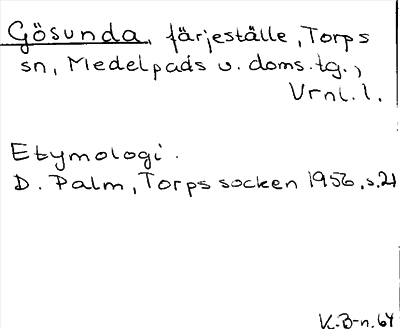 Gösunda, färjeställe, Torps
sn, Medelpads v. doms.tg.,
Vrnl. l.
Etymologi.
D. Palm, Torps socken 1956, s.21
K.B-n. 64